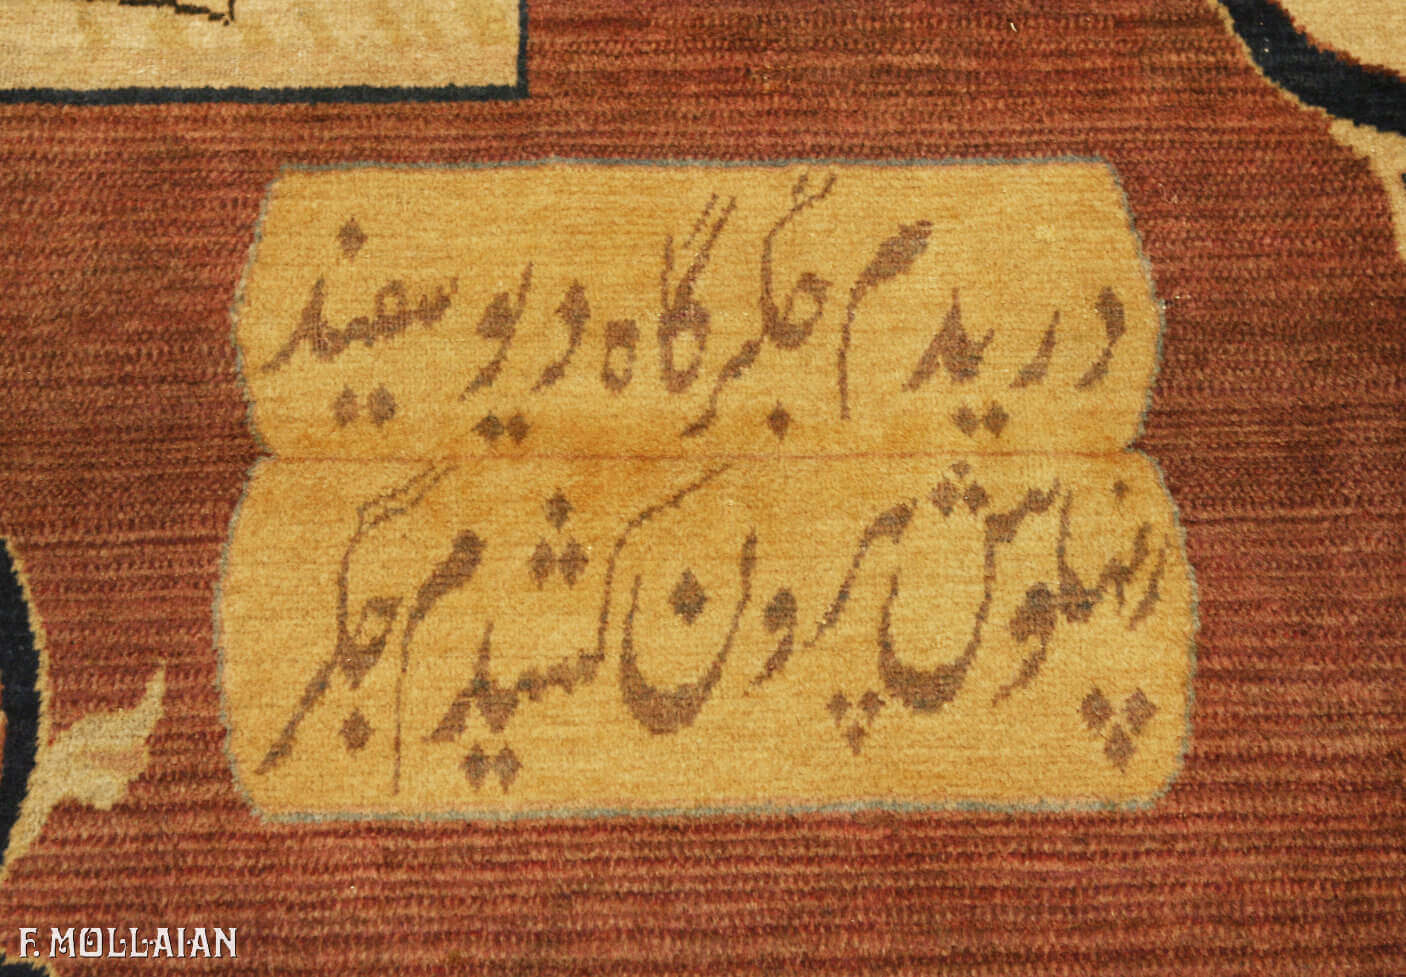 دریدم جگرگاه دیو سفید
ز پهلوش بیرون کشیدم جگر
F. MOLLAIAN